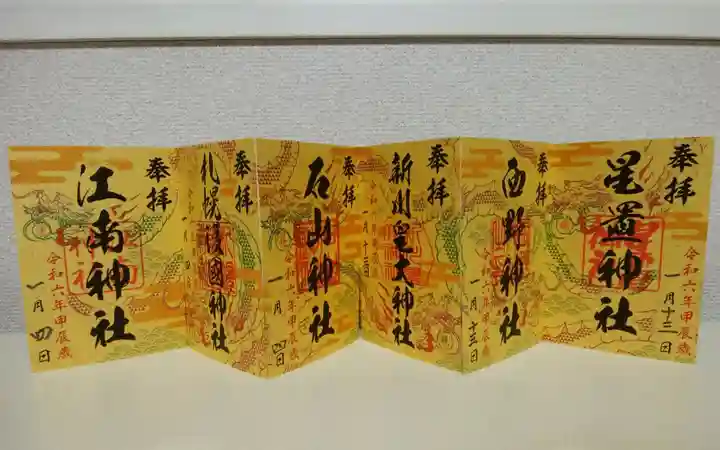 奉拝
星置神社
令和六年甲辰歳
一月十三日
奉拝
西野神社
一月十三日
奉拝
新川皇大神社
一月十三日
奉拝
石山神社
令和六年甲辰歳
一月四日
奉拝
札幌護國神社
奉拝
江南神社
令和六年甲辰歳
一月四日